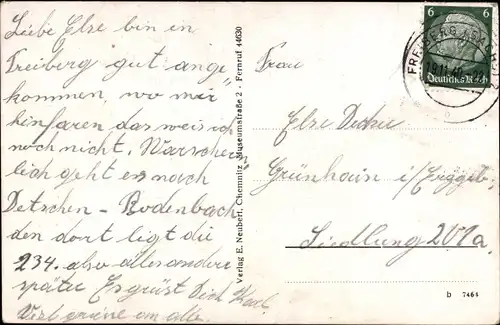 Liebe Else bin in
Freiberg gut ange
kommen, wo wir
hinfaren das weis ich
noch nicht, Warschein
lich geht es nach
Detschen - Bodenbach
den dort ligt die
234. also alles andere
später Es grüst Dich Karl
Viel grüse an alle.
Verlag E. Neubert, Chemnitz, Museumstraße 2 - Fernruf 44630
6 6
Deutsches Reich
FREIBERG
Frau
Else Decker
Grünhain i/Erzgeb.
Siedlung 201a.
b 7464